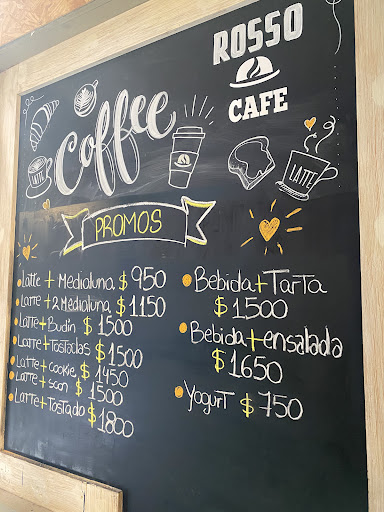 ROSSO
CAFE
Coffee
LATTE
LATTE
PROMOS
Latte + Medialuna $ 950
Latte + 2 Medialuna $ 1150
Latte + Budín $ 1500
Latte + Tostadas $ 1500
Latte + cookie $ 1450
Latte + scon $ 1500
Latte + Tostado $ 1800
Bebida + TarTa
$ 1,500
Bebida + ensalada
$ 1650
YogurT $ 750